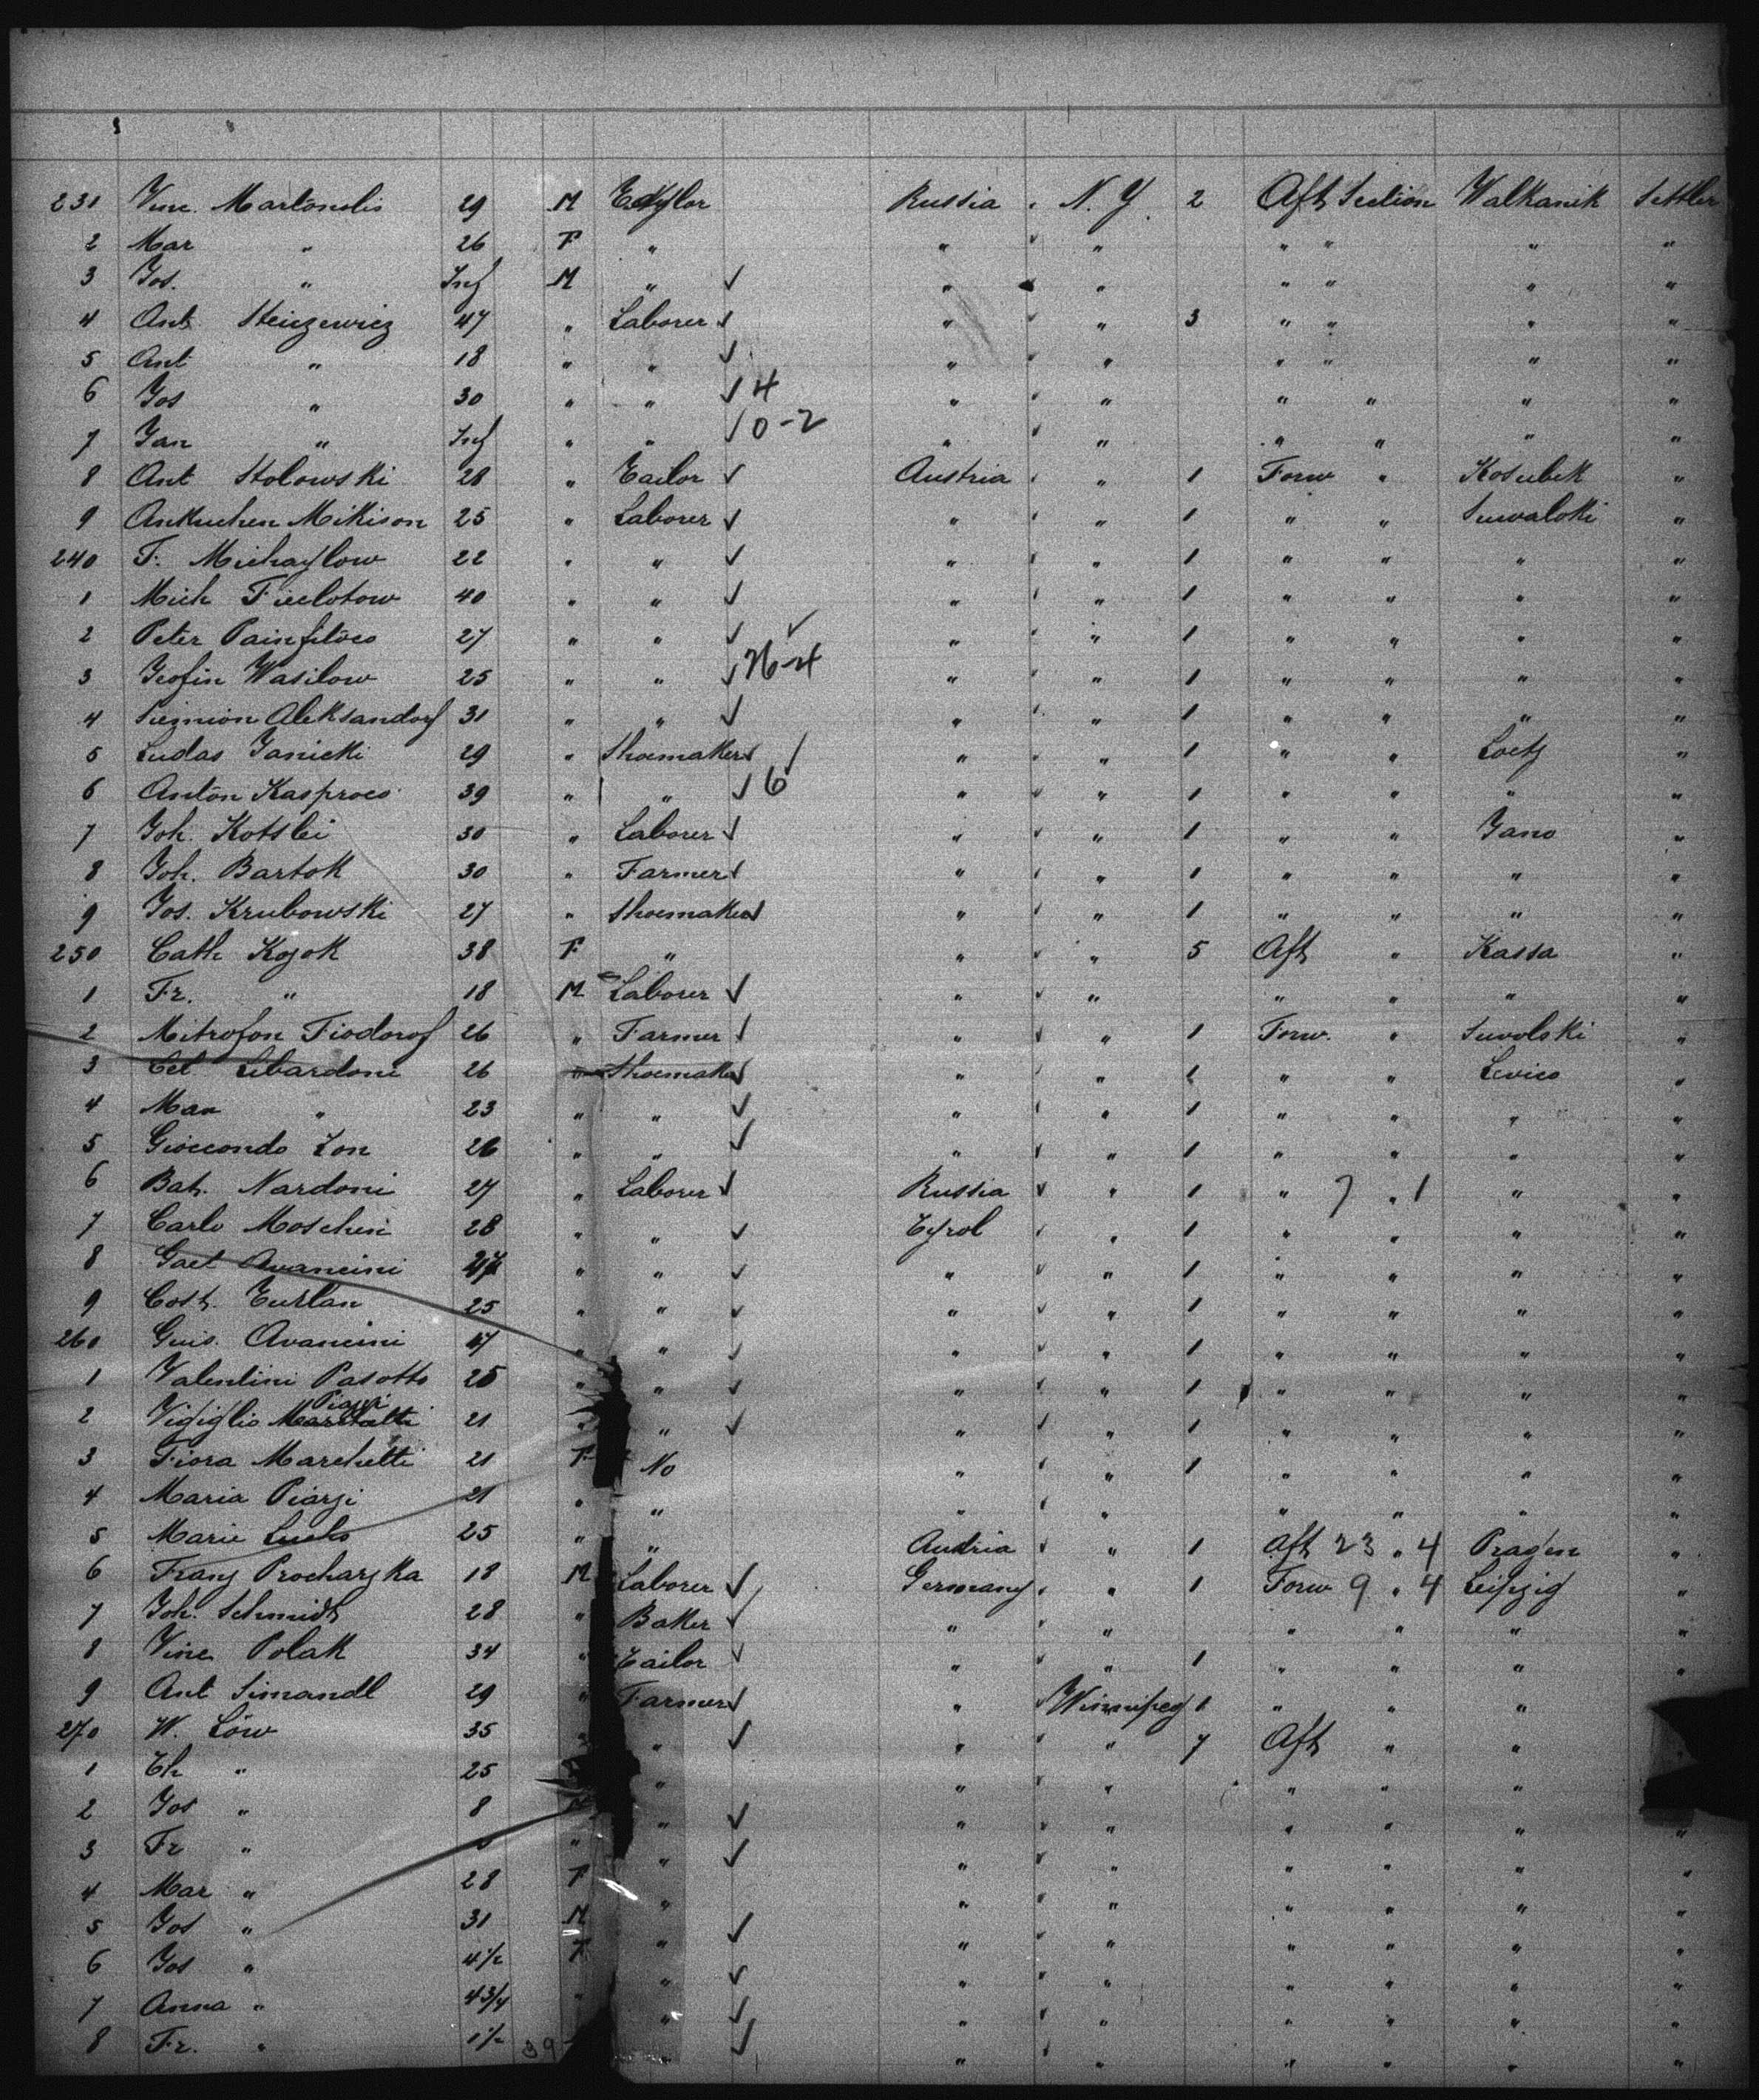 231 Vinc. Martonolis 29 M Taylor Russia N. Y. 2 Aft Section Walkanik Settler
2 Mar " 26 F " " " " " " "
3 Jos. " Inf M " " " " " " "
4 Ant. Steiczewicz 47 " Laborer " " 3 " " " "
5 Ant " 18 " " " " " " " "
6 Jos " 30 " " 4 " " " " " "
7 Jan " Inf " " 0-2 " " " " " "
8 Ant Stolowski 28 " Tailor Austria " 1 Forw " Kosubek "
9 Ankuchen Mikison 25 " Laborer " " 1 " " Suwalski "
240 F. Michaylow 22 " " " " 1 " " " "
1 Mich Fieelotow 40 " " " " 1 " " " "
2 Peter 27 " " " " 1 " " " "
3 Wasilow 25 " " 26-4 " " 1 " " " "
4 Siemion Aleksandorf 31 " " " " 1 " " " "
5 Ludas Janicki 29 " Shoemaker " " 1 " " Loetz "
6 Anton Kasproes 39 " " 6 " " 1 " " " "
7 Joh. Kotslei 30 " Laborer " " 1 " " Jano "
8 Joh. Bartok 30 " Farmer " " 1 " " " "
9 Jos. Krubowski 27 " Shoemaker " " 1 " " " "
250 Cath Kojok 38 F " " " 5 Aft " Kassa "
1 Fr. " 18 M Laborer " " " " " "
2 Mitrofon Fiodorof 26 " Farmer " " 1 Forw. " Suvolski "
3 Cel Libardoni 26 " Shoemaker " " 1 " " Levico "
4 Max " 23 " " " " 1 " " " "
5 Gioccondo Zon 26 " " " " 1 " " " "
6 Bat. Nardoni 27 " Laborer Russia " 1 " 7 " 1 " "
7 Carlo Moschen 28 " " Tyrol " 1 " " " "
8 Gaet Avancini " " " " 1 " " " "
9 Cost. Turlan 25 " " " " 1 " " " "
260 Guis. Avancini 47 " " " " 1 " " " "
1 Valentini Pasotto 25 " " " " 1 " " " "
Piazzi
2 Vigiglio Marchetti 21 " " " " 1 " " " "
3 Fiora Marchetti 21 F No " " 1 " " " "
4 Maria Piazzi 21 " " " " " " " "
5 Marie Lucks 25 " " Austria " 1 Aft 23 " 4 Pragen "
6 Franz Procharzka 18 M Laborer Germany " 1 Forw 9 " 4 Leipzig "
7 Joh. Schmidt 28 " Baker " " " " " "
8 Vinc Polak 34 " Tailor " " 1 " " " "
9 Ant Simandl 29 " Farmer " Winnipeg 1 " " " "
270 W. Löw 35 " " " " 7 Aft " " "
1 Th " 25 " " " " " " "
2 Jos " 8 M " " " " " " "
3 Fr " " " " " " " " "
4 Mar " 28 F " " " " " " "
5 Jos " 31 M " " " " " " "
6 Jos " 4 1/2 F " " " " " " "
7 Anna " 4 3/4 " " " " " " " "
8 Fr. " 1 1/2 39 " " " " " " "